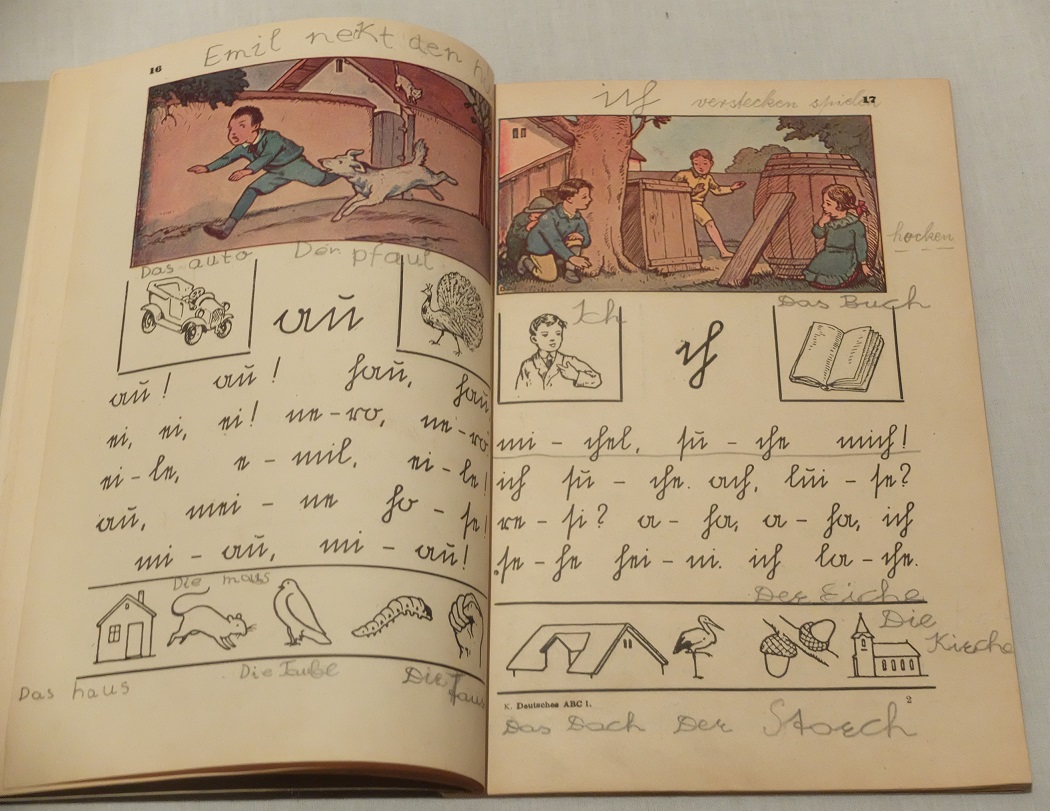 16
Emil nekt den
Das auto Der pfaul
au
au! au! hau, hau
ei, ei, ei! ne-ro, ne-ro
ei-le, e-mil, ei-le!
au, mei-ne ho-se!
mi-au, mi-au!
Die maus
Das haus Die Taube Die Faus
ich verstecken spielen 17
hocken
Ich Das Buch
ch
mi-chel, su-che mich!
ich su-che. ach, lui-se?
re-si? a-ha, a-ha, ich
se-he hei-ni. ich la-che.
Der Eiche
Die
Kirche
K. Deutsches ABC 1. 2
Das Dach Der Storch